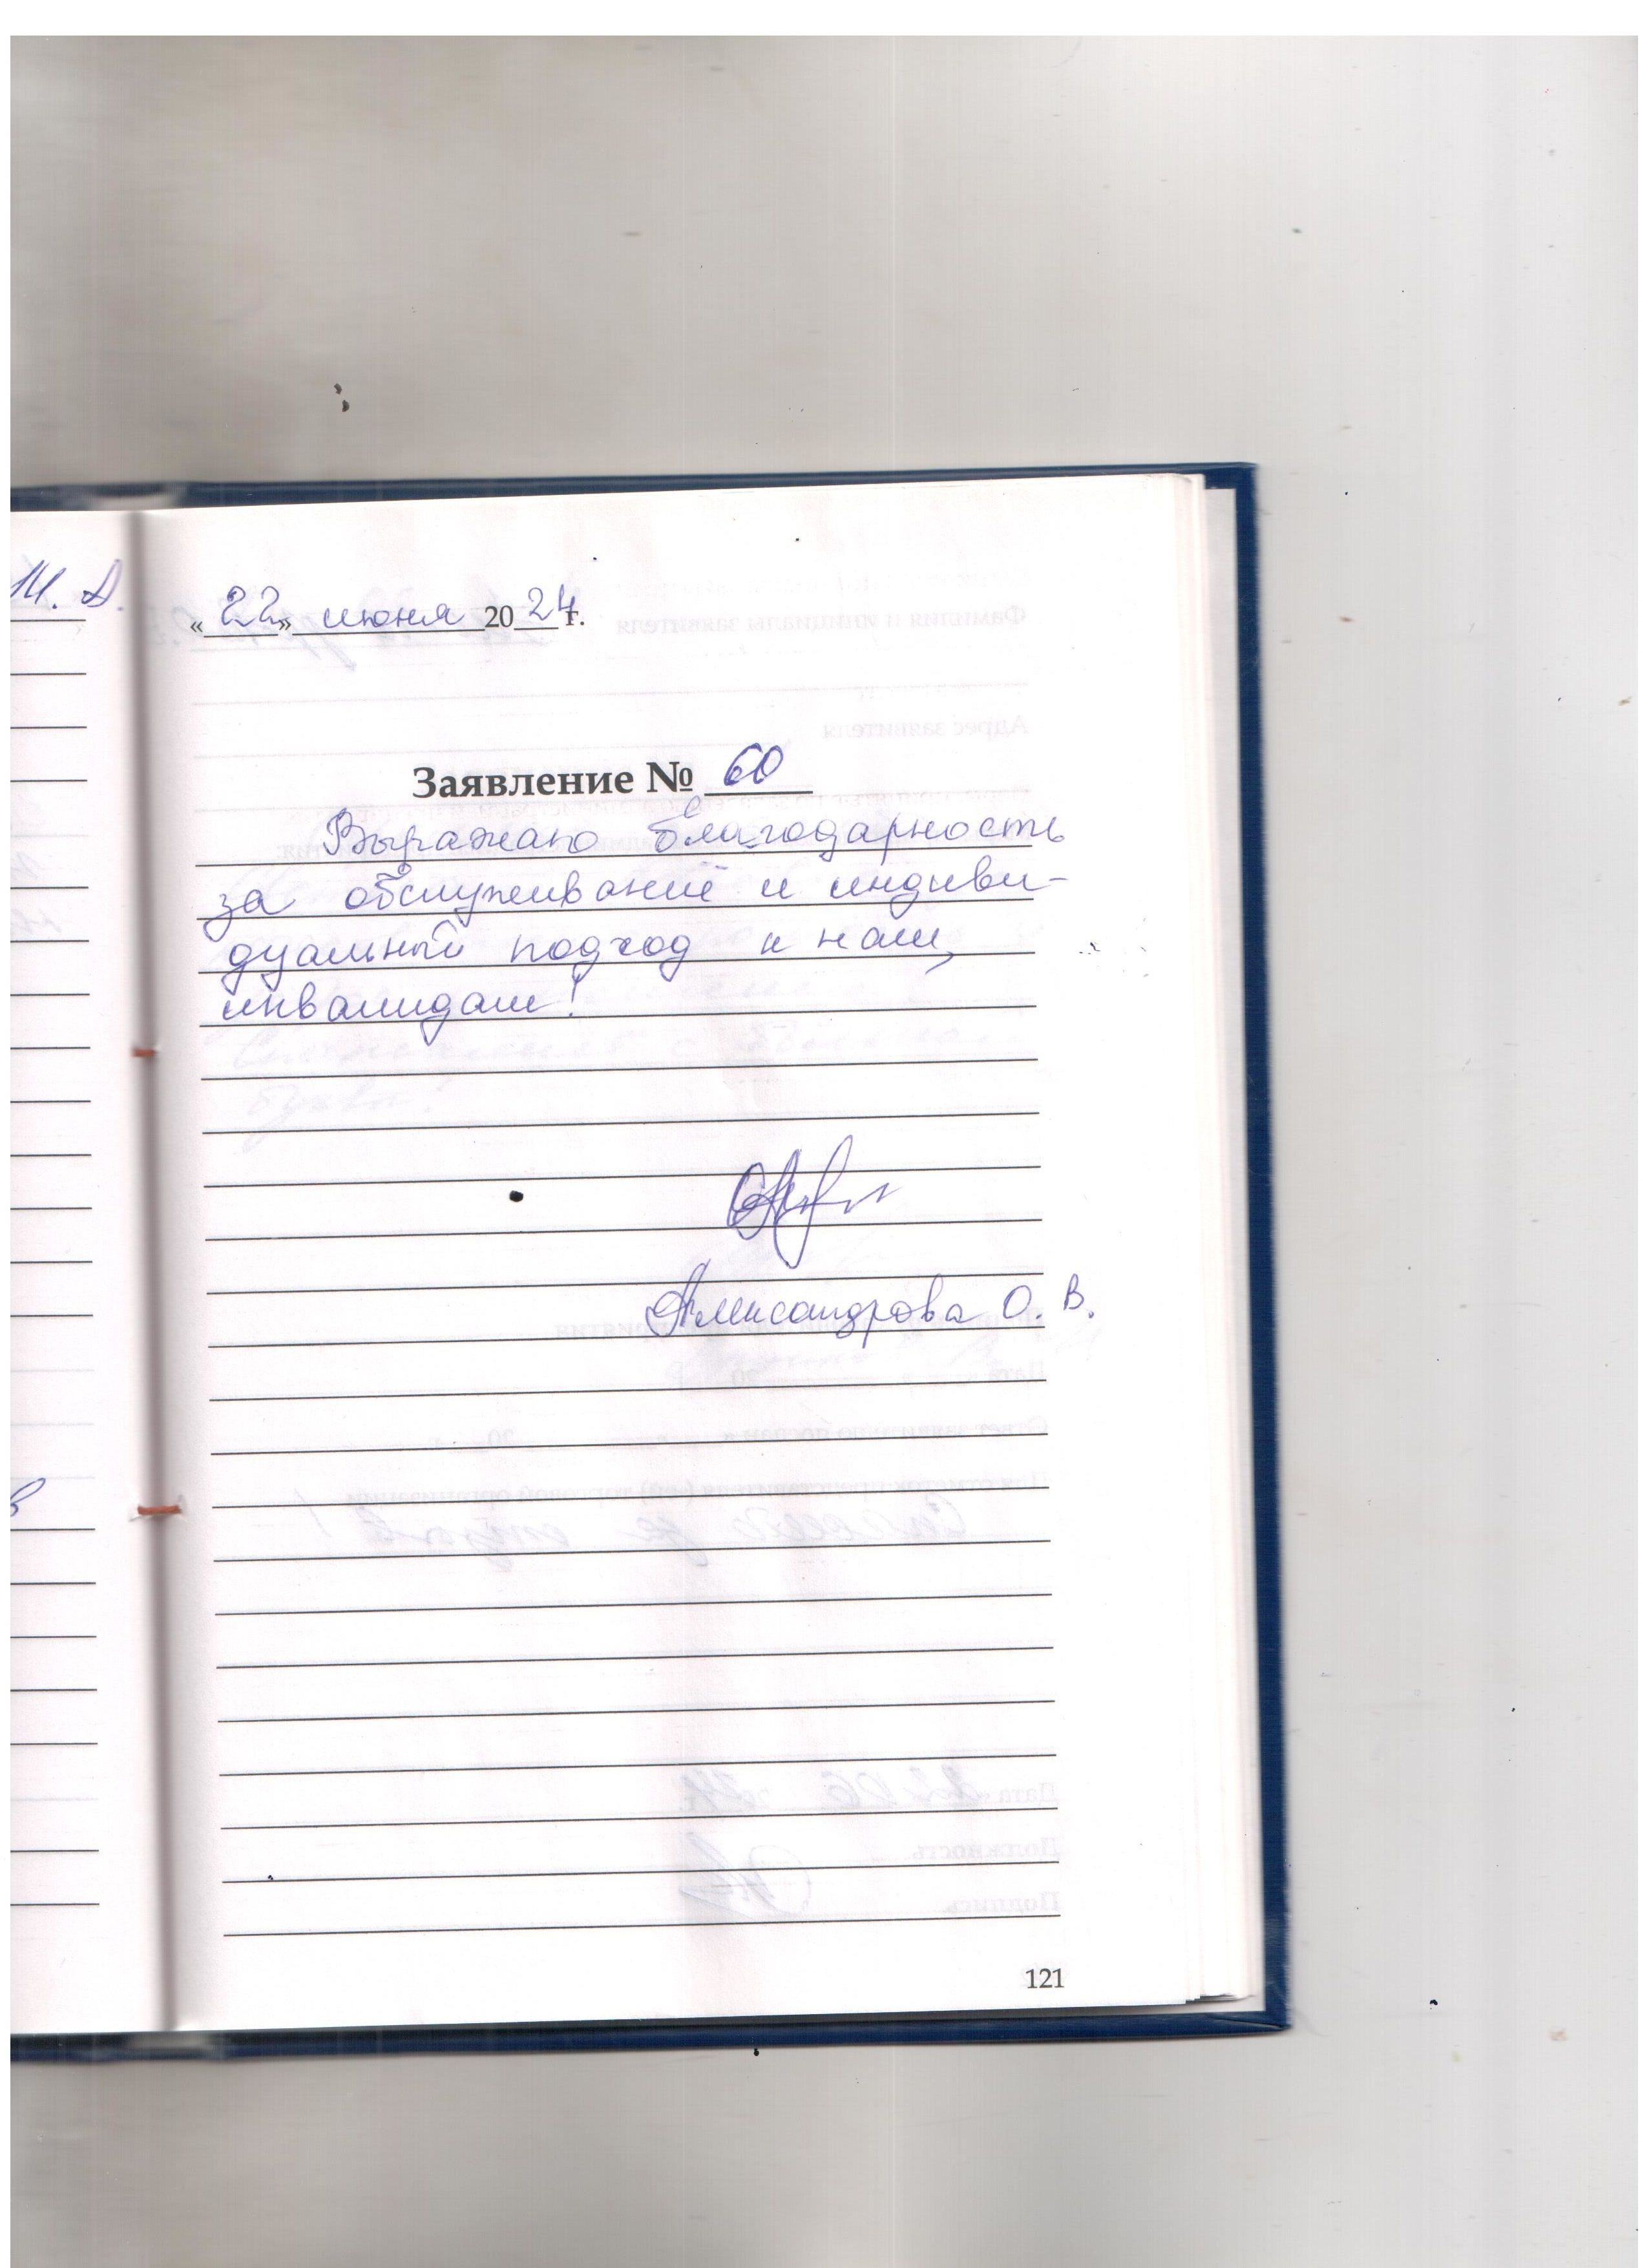 Ш. А.
«22» июня 2024 г.
Заявление № 60
Выражаю благодарность
за обслуживание и индиви-
дуальный подход к нам,
инвалидам!
Александрова О. В.
121